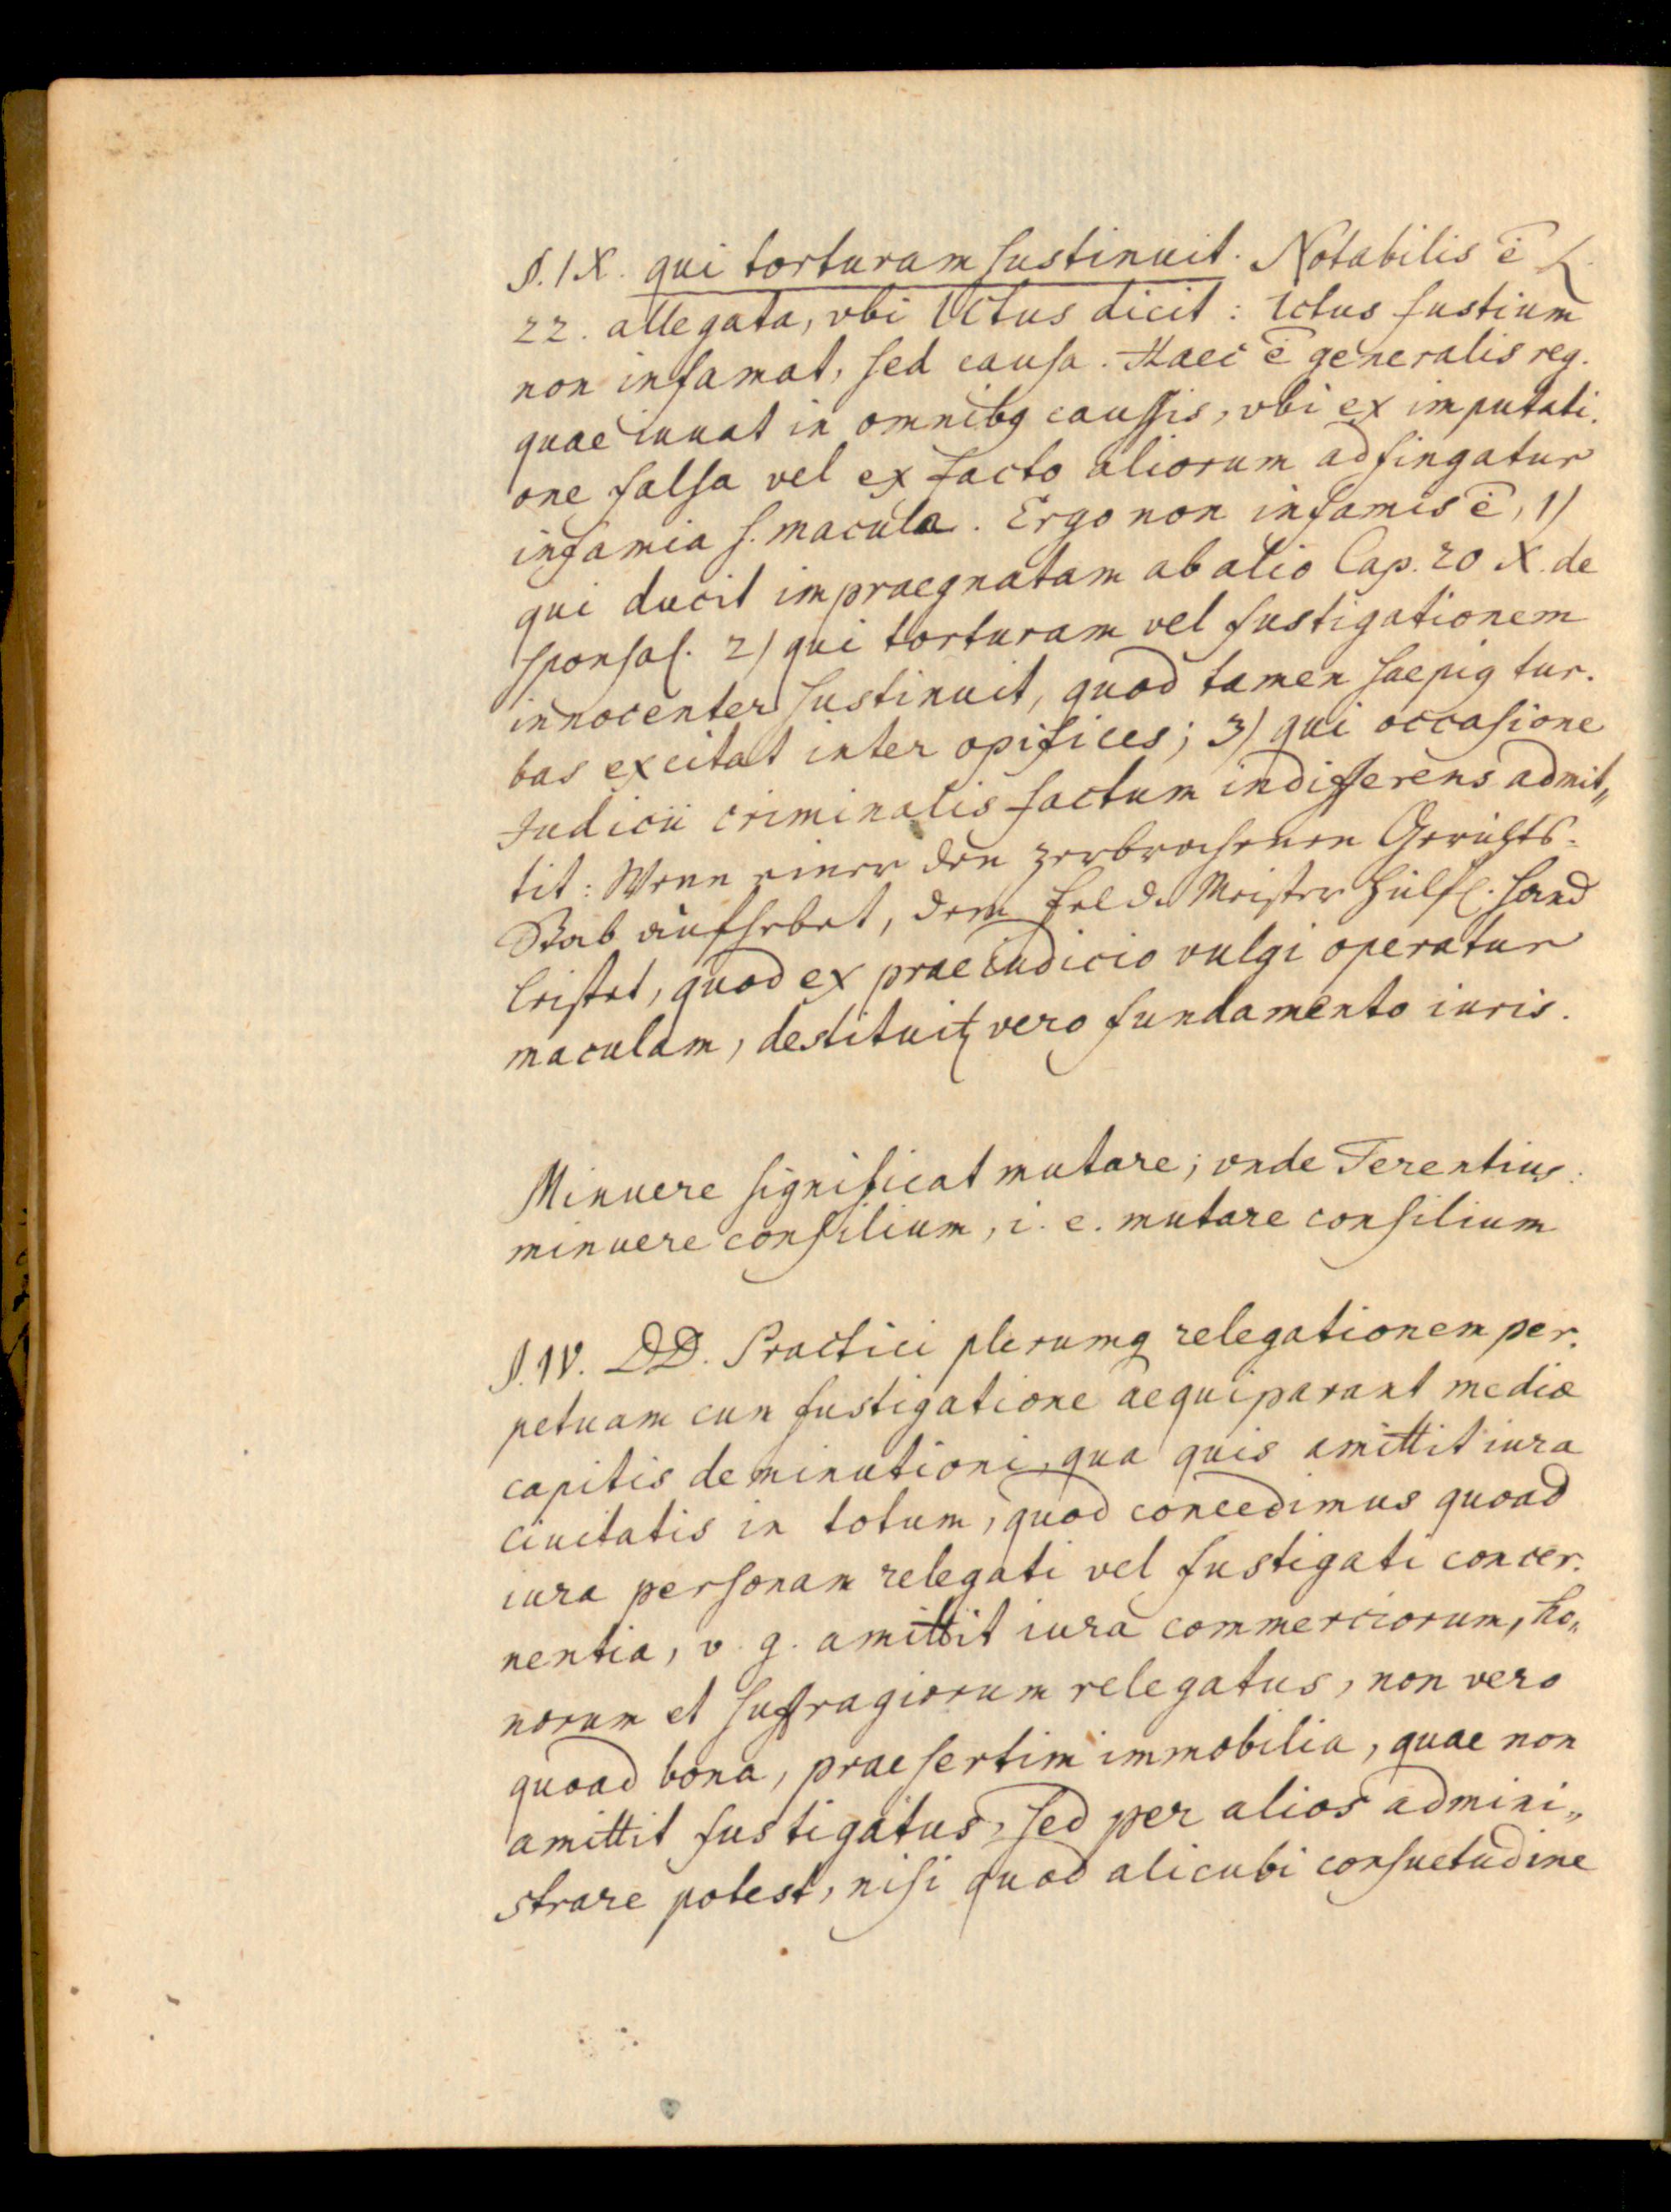 §. IX. qui torturam sustinuit. Notabilis ē L.
22. allegata, vbi ICtus dicit: Ictus fustium
non infamat, sed causa. Haec ē generalis reg.
quae iuuat in omnibq caussis, vbi ex imputati-
one falsa vel ex facto aliorum adfingatur
infamia s. macula. Ergo non infamis ē, 1)
qui ducit impraegnatam ab alio Cap. 20 X. de
sponsal. 2) qui torturam vel fustigationem
innocenter sustinuit, quod tamen saepiq tur-
bas excitat inter opifices; 3) qui occasione
Iudicii criminalis factum indifferens admit„
tit: Wenn einer den zerbrochenen Gerichts-
Stab aufhebet, dem Feld Meister hülfl. Hand
leistet, quod ex praeiudicio vulgi operatur
maculam, destituitꝶ vero fundamento iuris.
Minuere significat mutare; vnde Terentius:
minuere consilium, i. e. mutare consilium
§. IV. DD. Practici plerumq relegationem per-
petuam cum fustigatione aequiparant mediae
capitis deminutioni, qua quis amittit iura
ciuitatis in totum, quod concedimus quoad
iura personam relegati vel fustigati concer-
nentia, v. g. amittit iura commerciorum, ho„
norum et suffragiorum relegatus, non vero
quoad bona, praesertim immobilia, quae non
amittit fustigatus, sed per alios admini„
strare potest, nisi quod alicubi consuetudine